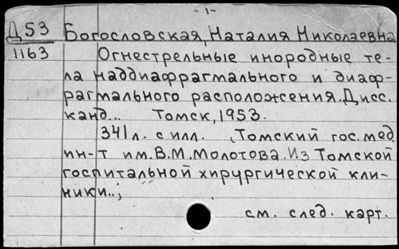 -1-
Д53 Богословская, Наталия Николаевна
1163 Огнестрельные инородные те-
ла наддиафрагмального и диаф-
рагмального расположения. Дисс.
канд... Томск, 1953.
341л. с илл. (Томский гос. мед.
ин-т им. В.М. Молотова. Из Томской
госпитальной хирургической кли-
ники..,
см. след. карт.